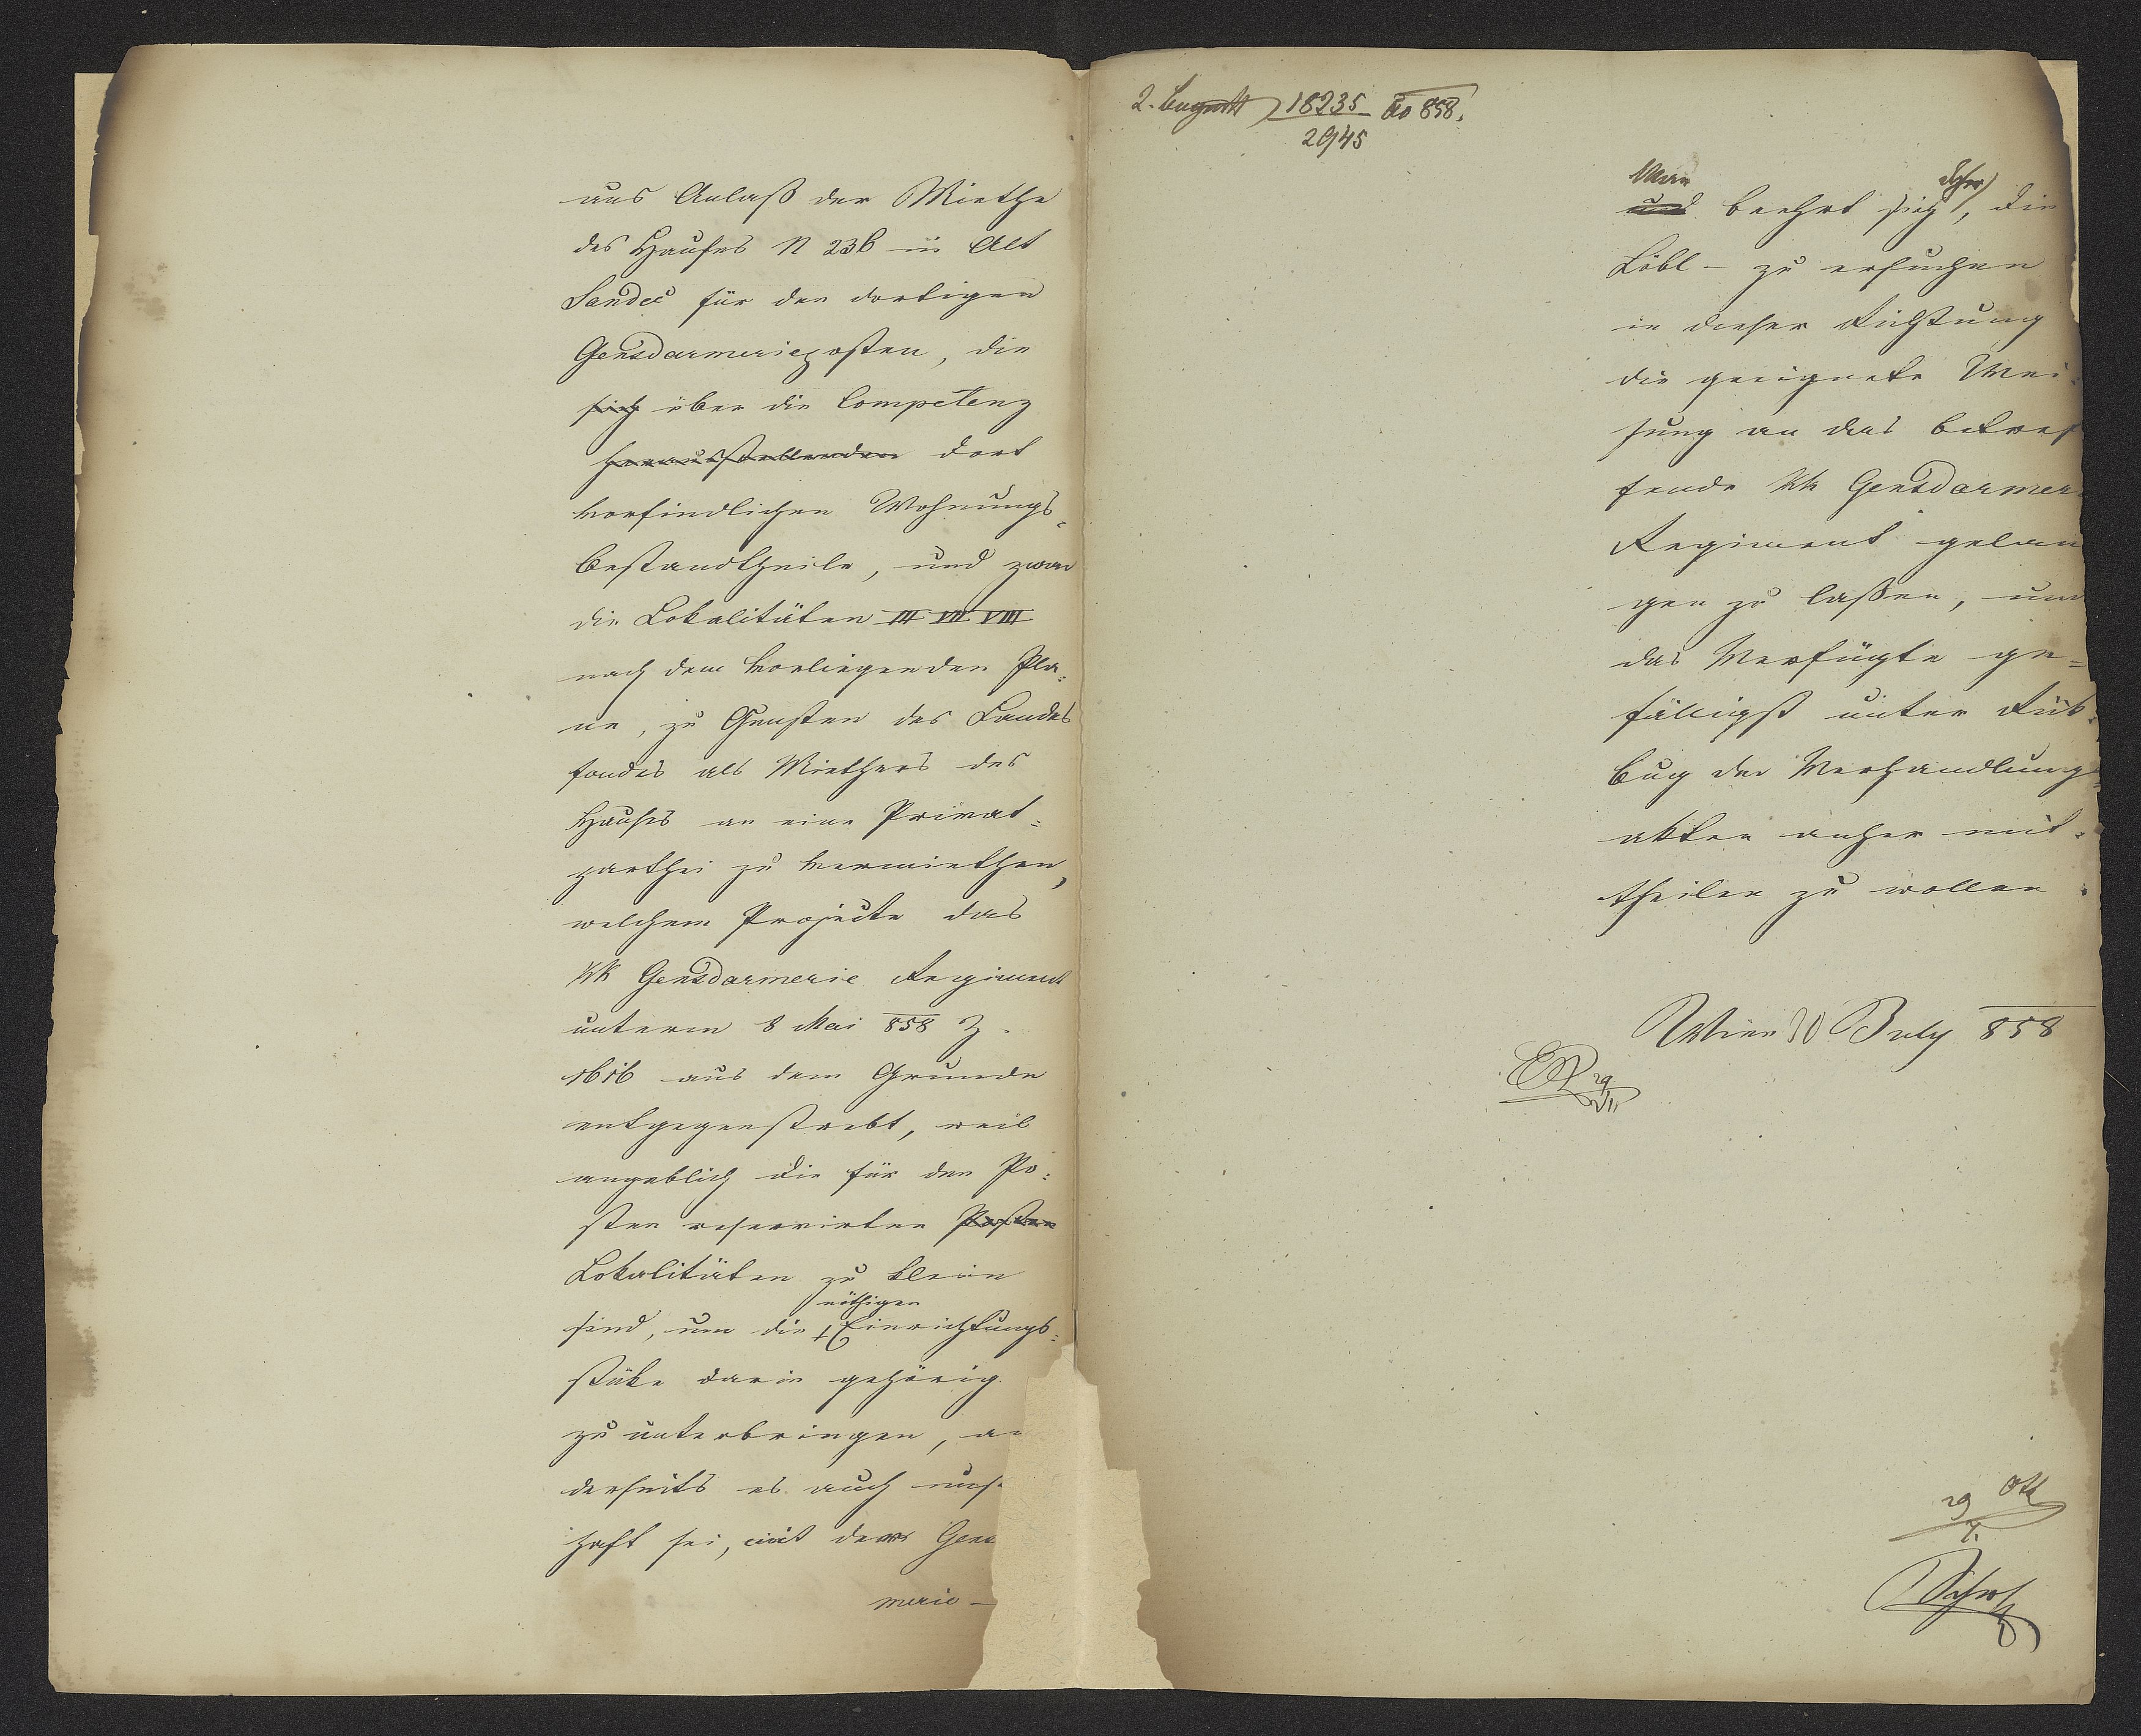 aus Anlaß der Miethe
des Hauses N 236 in Alt
Sandec für den dortigen
Gensdarmerieposten, die
sich über die Competenz
herausstellenden dort
vorfindlichen Wohnungs=
bestandtheile, und zwar
die Lokalitäten III VII VIII
nach dem vorliegenden Pla=
ne, zu Gunsten des Landes
fondes als Miethers des
Hauses an eine Privat=
parthei zu vermiethen,
welchem Projecte das
kk Gensdarmerie Regiment
unterm 8 Mai 858 Z.
1616 aus dem Grunde
entgegenstrebt, weil
angeblich die für den Po=
sten reservirten Posten
Lokalitäten zu klein
nöthigen
sind, um die Einrichtungs=
stüke darin gehörig
zu unterbringen, an
derseits es auch
haft sei, mit der Gens
merie –
2. 18235 do 858.
2945
Man daher
und beehrt sich, die
Löbl – zu ersuchen
in dieser Richtung
die geeignete Wei=
sung an das betref
fende kk Gensdarmer
Regiment gelan
gen zu laßen, und
das Verfügte ge=
fälligst unter Rük=
bug der Verhandlungs=
akten anher mit=
theilen zu wollen.
Wien 30 July 858
29
VII
29
7.